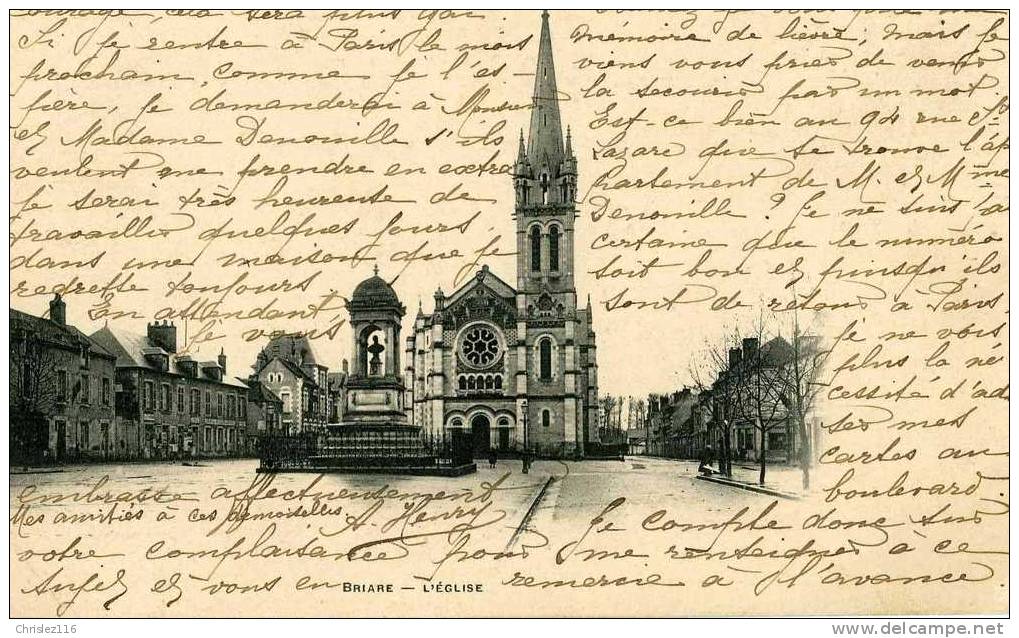 courage, cela sera plus gai
Si je rentre à Paris le mois
prochain, comme je l'es-
père, je demanderai à Monsieur
et Madame Denouille s'ils
veulent me prendre en extra
je serai très heureuse de
travailler quelques jours,
dans une maison que je
regrette toujours
En attendant
je vous
embrasse affectueusement
Mes amitiés à ces demoiselles
A. Henry
mémoire de lièvre; mais je
viens vous prier de venir
la secourir par un mot.
Est-ce bien au 94 rue St
Lazare que se trouve l'ap
partement de M. et Mme
Denouille? Je ne suis pas
certaine que le numéro
soit bon et puisqu'ils
sont de retour à Paris
je ne vois
plus la né
cessité d'ad
ser mes
cartes au
boulevard.
Je compte donc sur
votre complaisance pour me renseigner à ce
sujet et vous en remercie à l'avance
BRIARE — L'ÉGLISE
Chrislez116
www.delcampe.net